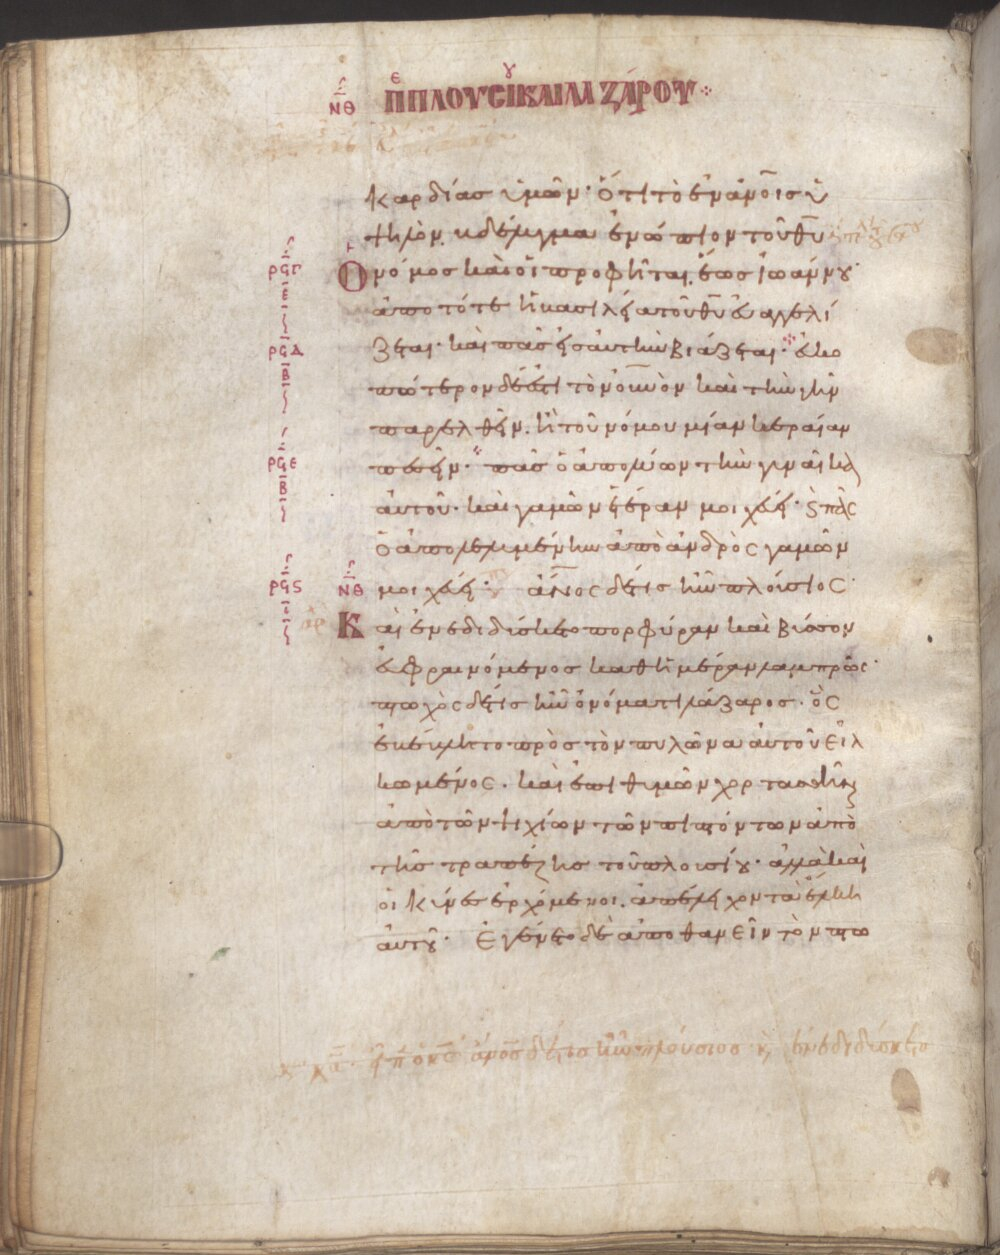 ΝΘ ΠΕ ΠΛΟΥΣΙΟΥ ΚΑΙ ΛΑΖΆΡΟΥ
καρδίασ ὑμῶν· ὅτι τὸ ἐν ἀν̅οισ ὑ
ψηλὸν, βδέλυγμα ἐνώπιον τοῦ θ̅υ
Ὁ νόμοσ καὶ οἱ προφῆται, ἕωσ ἰωάννου·
ἀπο τότε ἡ βασιλεία τοῦ θ̅υ ἐυαγγελί
ζεται· καὶ πᾶσ εἰσ ἀυτὴν βιάζεται· ἐυκο
πώτερον δέ ἐστι τὸν οὐ̅νον καὶ τὴν γῆν
παρελθεῖν. ἢ τοῦ νόμου μίαν κεραίαν
πεσεῖν· πᾶσ ὁ ἀπολύων τὴν γυναῖκα
ἀυτοῦ· καὶ γαμῶν ἑτέραν μοιχεύει· ϗ πᾶς
ὁ ἀπολελυμένην ἀπὸ ἀνδρὸς γαμῶν
μοιχεύει· ἄν̅ος δέ τισ ἦν πλούσιος·
Καὶ ἐνεδιδύσκετο πορφύραν καὶ βύσσον
ἐυφραινόμενοσ καθ ἡμέραν λαμπρῶς·
πτωχὸς δέ τισ ἦν ὀνόματι λάζαροσ· ὃς
ἐβέβλητο πρὸσ τὸν πυλῶνα ἀυτοῦ εἱλ
κωμένος· καὶ ἐπιθυμῶν χορτασθῆναι
ἀπὸ τῶν ψιχίων τῶν πιπτόντων ἀπὸ
τῆσ τραπέζησ τοῦ πλουσίου· ἀλλὰ καὶ
οἱ κύνεσ ἐρχόμενοι, ἀπέλειχον τὰ ἕλκη
ἀυτοῦ· Ἐγένετο δὲ ἀποθανεῖν τὸν πτω
ρϟγ
ε
ρϟδ
β
ρϟε
β
ρϟς
ι
ΝΘ
ἄν̅οσ δέ τισ ἦν πλούσιοσ ϗ ἐνεδιδύσκετο